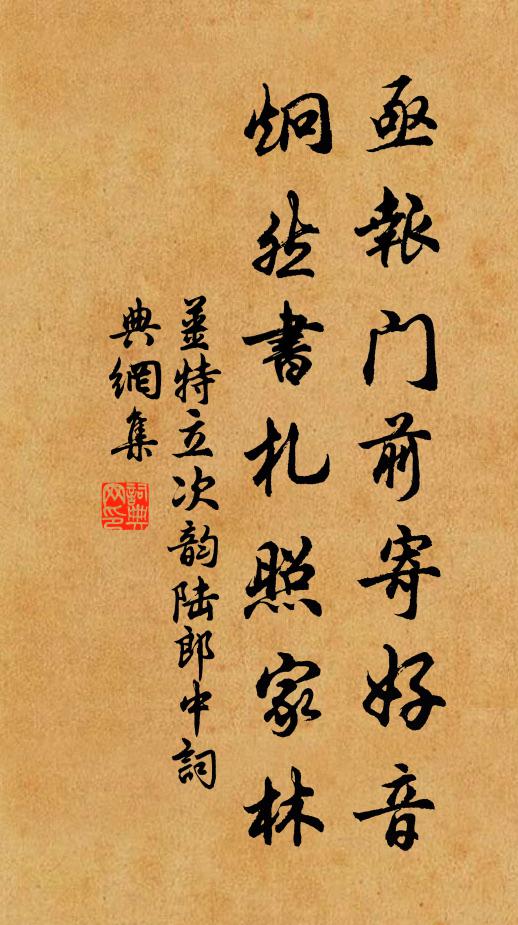 亟報门前寄好音
炯然書札照家林
薑特立次韵陆郎中詞
典網集
詞典
网印